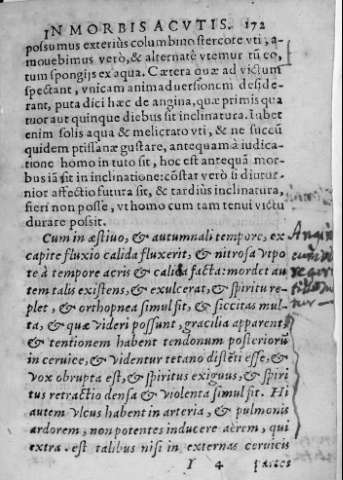 IN MORBIS ACVTIS. 172
possumus exteriùs columbino stercore vti, a-
mouebimus verò, & alternatè vtemur tũ co,
tum spongijs ex aqua. Cætera quæ ad victum
spectant, vnicam animaduersionem deside-
rant, puta dici hæc de angina, quæ primis qua
tuor aut quinque diebus sit inclinatura. Iubet
enim solis aqua & melicrato vti, & ne succũ
quidem ptissanæ gustare, antequam à iudica-
tione homo in tuto sit, hoc est antequã mor-
bus iã sit in inclinatione: cõstat verò si diutur-
nior affectio futura sit, & tardiùs inclinatura,
fieri non posse, vt homo cum tam tenui victu
durare possit.
Cum in æstiuo, & autumnali tempore, ex
capite fluxio calida fluxerit, & nitrosa vtpo
te à tempore acris & calida facta: mordet au
tem talis existens, & exulcerat, & spiritu re-
plet, & orthopnea simul sit, & siccitas mul-
ta, & quæ videri possunt, gracilia apparent
& tentionem habent tendonum posteriorũ
in ceruice, & videntur tetano distẽti esse, &
vox obrupta est, & spiritus exiguus, & spiri
tus retractio densa & violenta simul sit. Hi
autem vlcus habent in arteria, & pulmonis
ardorem, non potentes inducere aërem, qui
extra est talibus nisi in externas ceruicis
I 4 partes